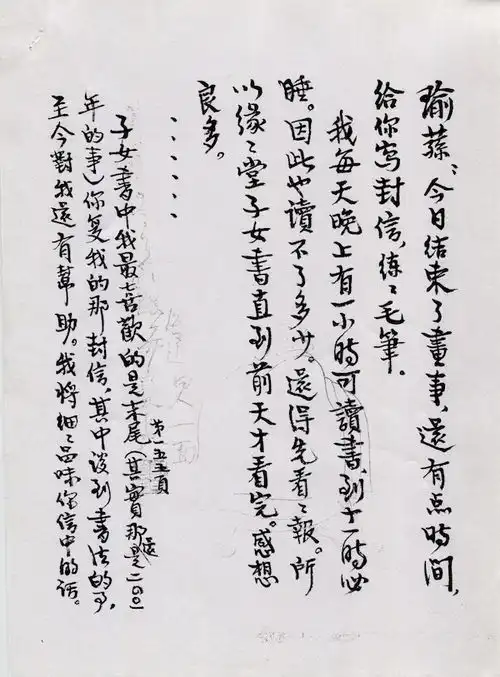 瑜蓀：今日结束了畫事，還有点時间，
给你写封信，練〻毛筆。
我每天晚上有一小時可讀書到十一時必
睡。因此也讀不了多少。還得先看〻報。所
以缘〻堂子女書直到前天才看完。感想
良多。
......
子女書中我最喜歡的是末尾第一五五頁（其實那還是二〇〇一
年的事）你复我的那封信，其中谈到書法的事，
至今對我還有幫助。我将细〻品味你信中的话。